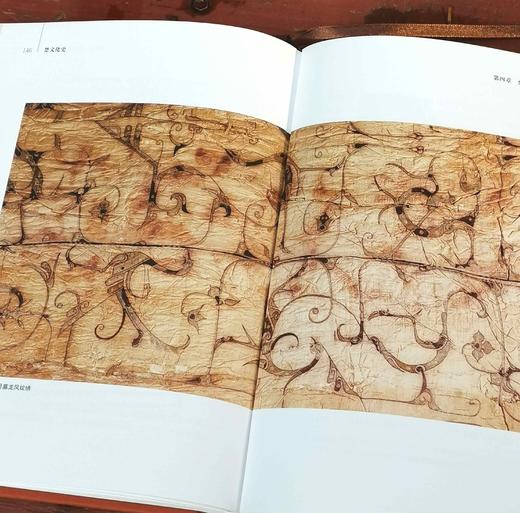 146 楚文化史
第四章
墓龙凤纹绣